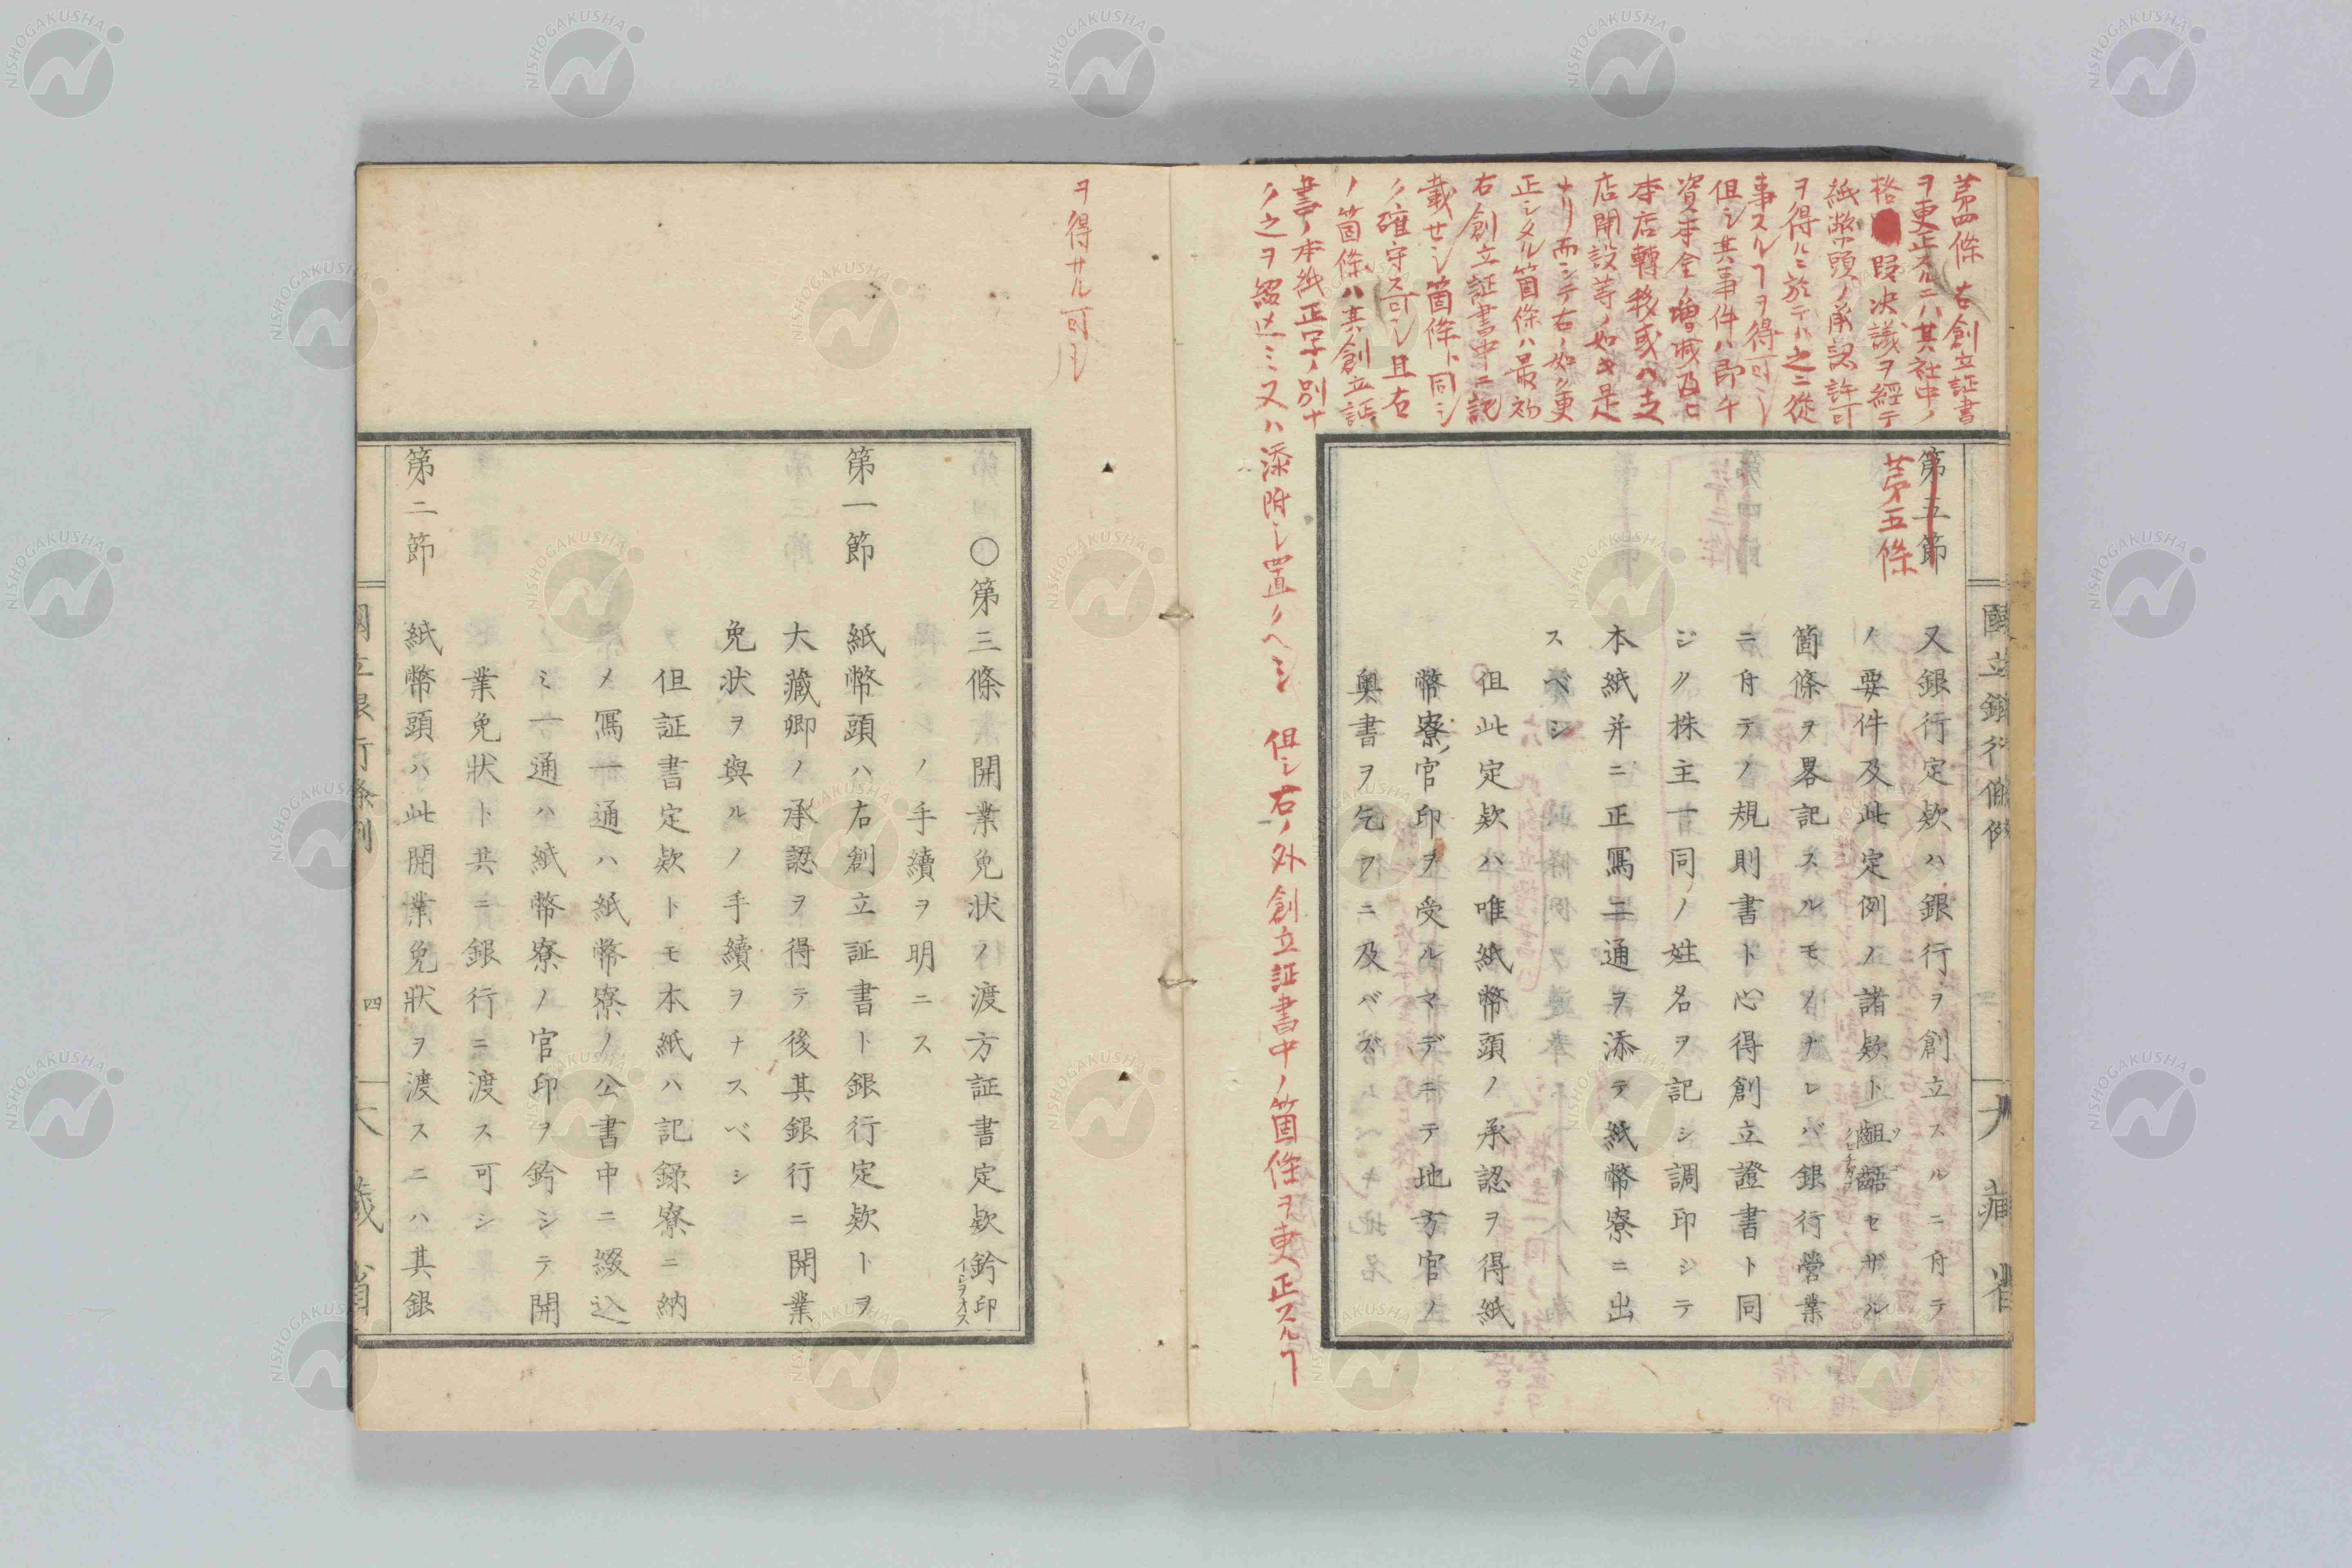 第四條 右創立証書
ヲ更正スルニハ其社中ノ
格段決議ヲ経テ
紙幣頭ノ承認許可
ヲ得ルニ於テハ之ニ從
事スルヿヲ得可シ
但シ其事件ハ即チ
資本金ノ増減及ヒ
本店轉移或ハ支
店開設等ノ如キ是
ナリ而シテ右ノ如ク更
正シタル箇條ハ最初
右創立証書中ニ記
載セシ箇條ト同シ
ク確守ス可シ且右
ノ箇條ハ其創立証
書ノ本紙正寫ノ別ナ
ク之ヲ綴込ミ又ハ添附シ置クヘシ 但シ右ノ外創立証書中ノ箇條ヲ更正スルヿ
ヲ得サル可シ
國立銀行條例
大藏省
第五節
第五條
又銀行定欵ハ銀行ヲ創立スルニ舟テ
ノ要件及此定例ノ諸欵ト齟齬セザル
箇條ヲ畧記スルモノナレバ銀行營業
ニ舟テノ規則書ト心得創立證書ト同
ジク株主一同ノ姓名ヲ記シ調印シテ
本紙并ニ正寫二通ヲ添テ紙幣寮ニ出
スベシ
但此定欵ハ唯紙幣頭ノ承認ヲ得紙
幣寮ノ官印ヲ受ルマデニテ地方官ノ
奥書ヲ乞フニ及バズ
○第三條 開業免状ノ渡方証書定欵鈐印
インヲオス
ノ手續ヲ明ニス
第一節 紙幣頭ハ右創立証書ト銀行定欵トヲ
大藏卿ノ承認ヲ得テ後其銀行ニ開業
免状ヲ與ルノ手續ヲナスベシ
但証書定欵トモ本紙ハ記録寮ニ納
メ寫一通ハ紙幣寮ノ公書中ニ綴込
ミ一通ハ紙幣寮ノ官印ヲ鈐シテ開
業免状ト共ニ銀行ニ渡ス可シ
第二節 紙幣頭ハ此開業免狀ヲ渡スニハ其銀
國立銀行條例
四
大藏省